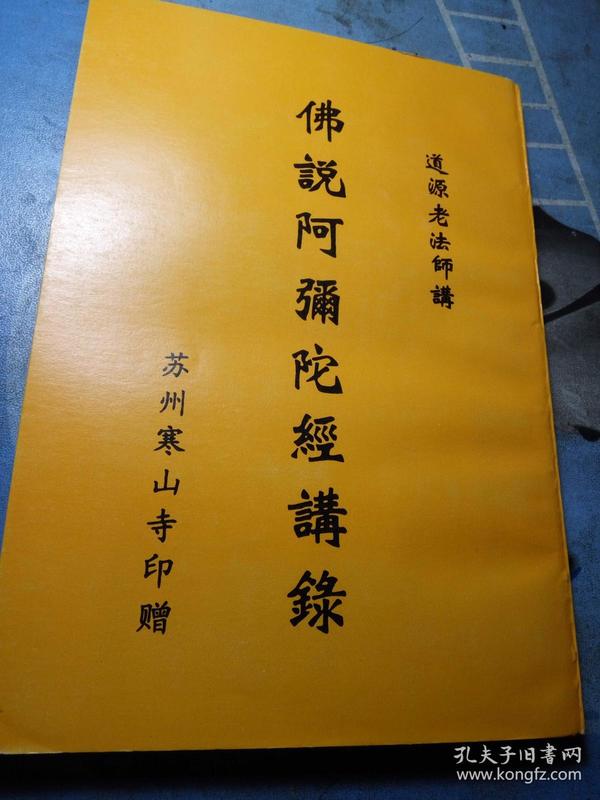 道源老法師講
佛說阿彌陀經講錄
苏州寒山寺印赠
孔夫子旧书网
www.kongfz.com